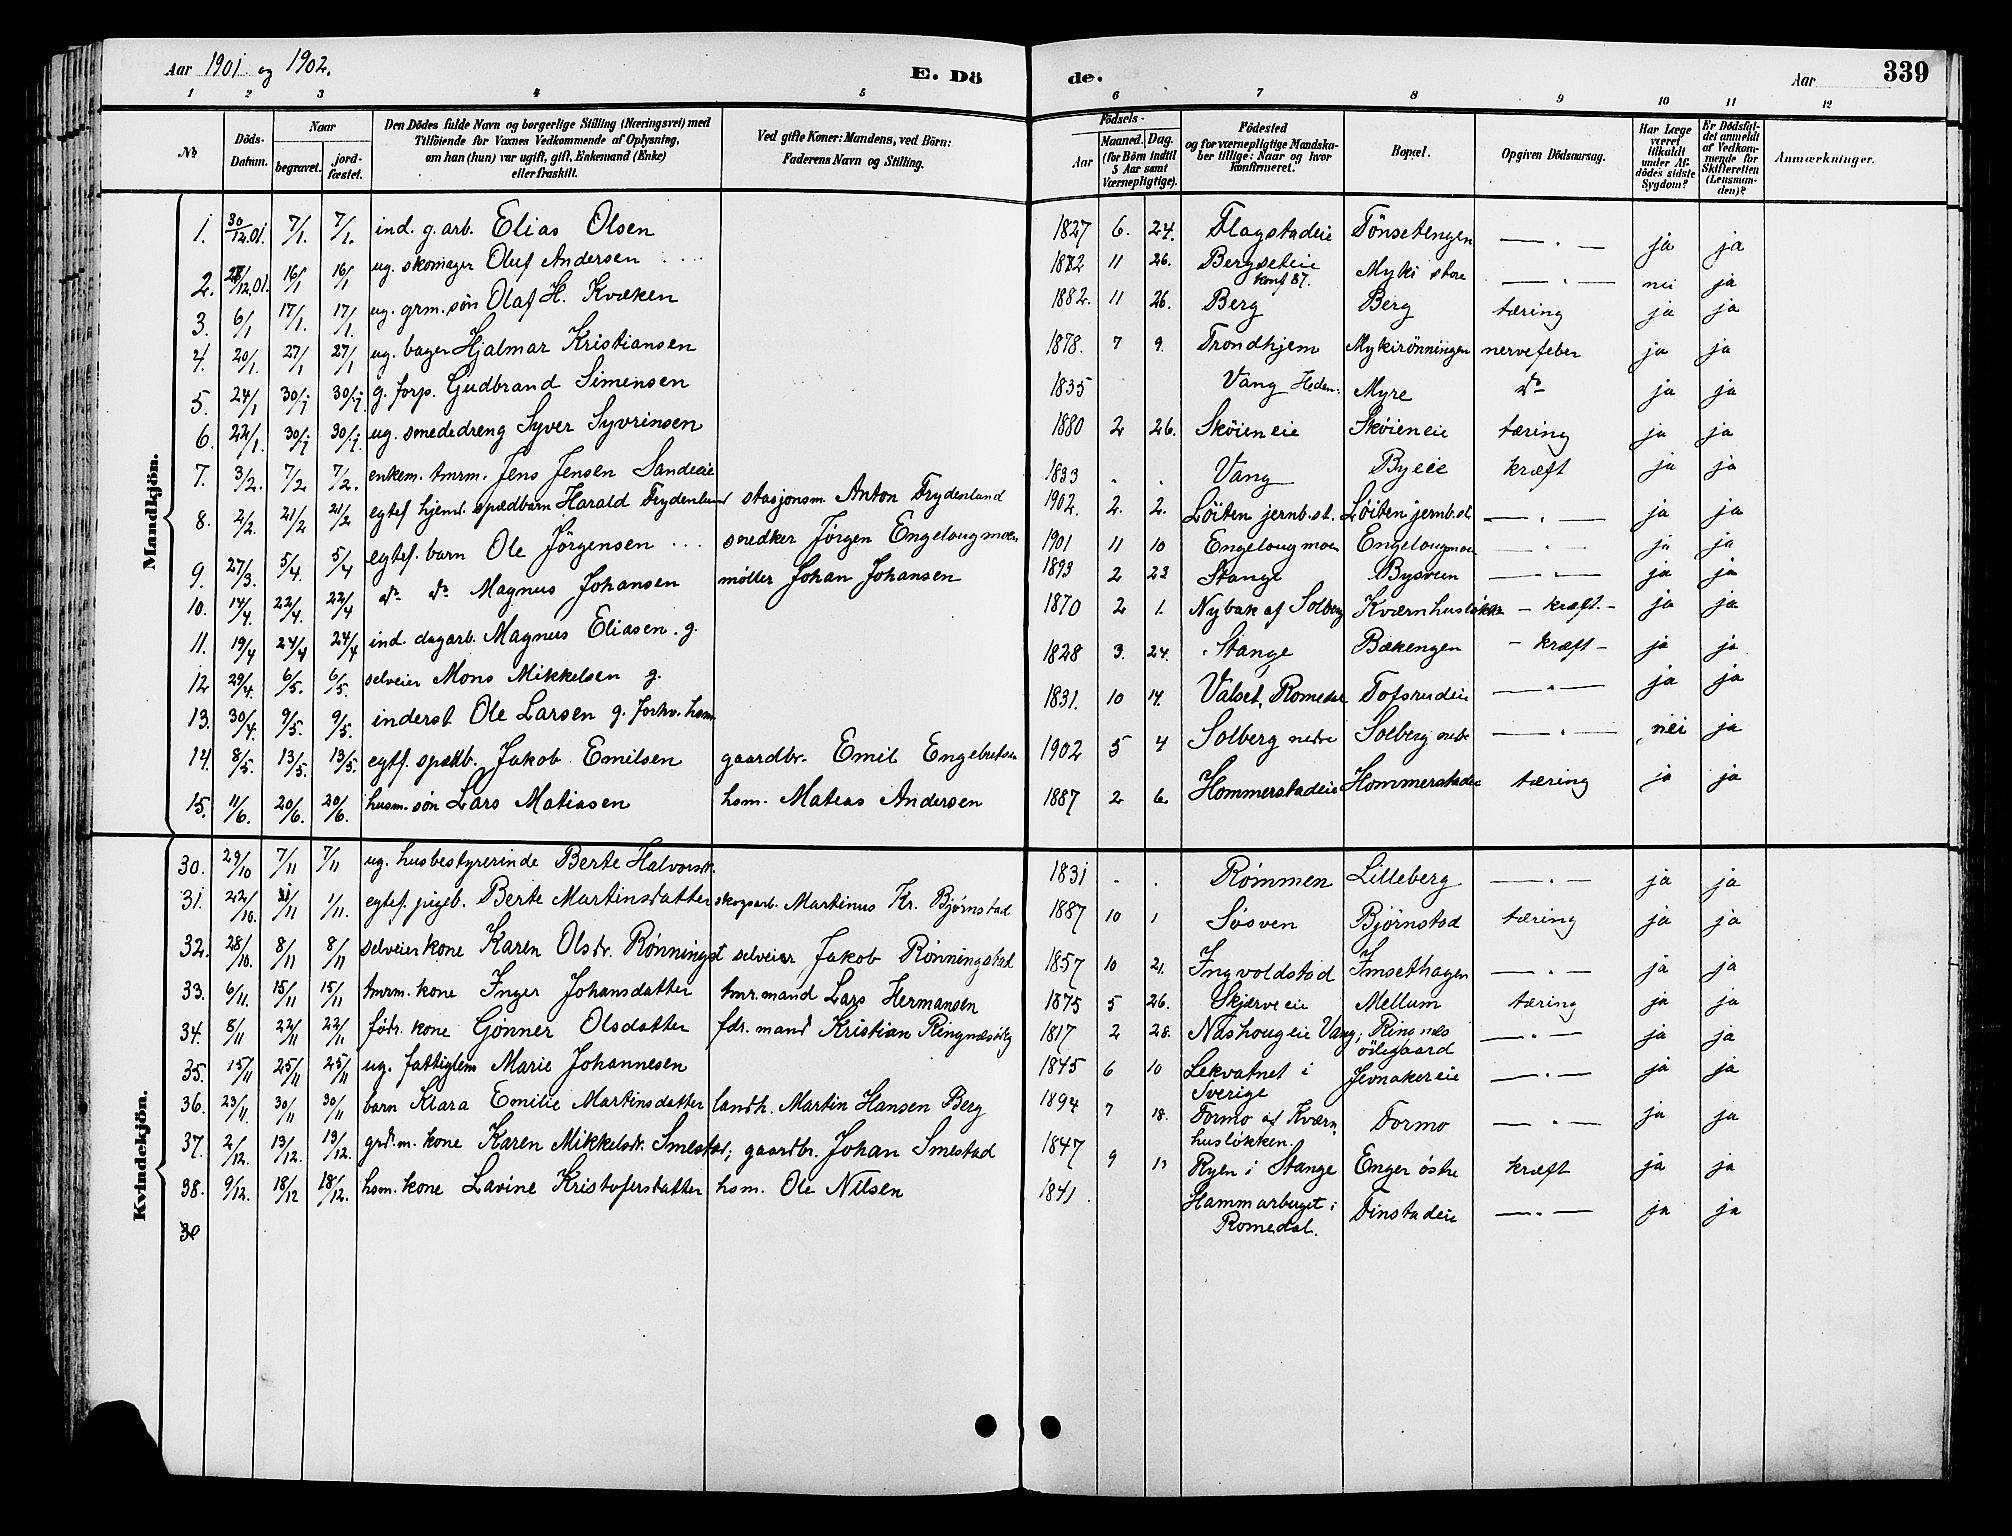 Aar 1901 og 1902. E. Dö de. Aar 339
1 2 3 4 5 6 7 8 9 10 11 12
№ Döds-Datum. Naar begravet. jord-fæstet. Den Dödes fulde Navn og borgerlige Stilling (Næringsvei) med Tilföiende for Voxnes Vedkommende af Oplysning, om han (hun) var ugift, gift, Enkemand (Enke) eller fraskilt. Ved gifte Koner: Mandens, ved Börn: Faderens Navn og Stilling. Födsels- Aar Maaned. Dag. (for Börn indtil 5 Aar samt Værnepligtige). Födested og for værnepligtige Mandskaber tillige: Naar og hvor konfirmeret. Bopæl. Opgiven Dödsaarsag. Har Læge været tilkaldt under Afdödes sidste Sygdom? Er Dödsfaldet anmeldt af Vedkommende for Skifteretten (Lensmanden)? Anmærkninger.
Mandkjön.
1. 30/12.01. 7/1. 7/1. ind. g. arb. Elias Olsen 1827 6. 24. Flagstadeie Tönsetengen — " — ja ja
2. 28/12.01. 16/1 16/1 ug. skomager Oluf Andersen 1882 11 26. Bergseteie konf 87. Myki store — " — nei ja
3. 6/1 17/1. 17/1. ug. grm. søn Olaf H. Kvæken 1882. 11 26. Berg Berg tæring ja ja
4. 20/1. 27/1 27/1 ug. bager Hjalmar Kristiansen 1878. 7 9. Trondhjem Mykirönningen nervefeber ja ja
5. 24/1 30/1 30/1. g. forp. Gudbrand Simensen 1835 Vang Heden. Myre do ja ja
6. 22/1. 30/1 30/1. ug. smededreng Syver Syvrinsen 1880 2 26. Sköieneie Sköieneie tæring ja ja
7. 3/2. 7/2 7/2. enkem. tmrm. Jens Jensen Sandeie 1833 . . Vang Byeie kræft ja ja
8. 2/2. 21/2 21/2 egtef. hjemd. spædbarn Harald Frydenlund stasjonsm. Anton Frydenlund 1902. 2. 2. Löiten jernb.st. Löiten jernb.st — " — ja ja
9. 27/3. 5/4. 5/4 egtef. barn Ole Jörgensen ... snedker Jörgen Engelougmoen 1901 11 10 Engelougmoen Engelougmoen — " — ja ja
10. 14/4. 22/4. 22/4 do do Magnus Johansen møller Johan Johansen 1893 2 23 Stange Bysveen — " — ja ja
11. 19/4 24/4 24/4 ind. dagarb. Magnus Eliasen. g. 1870 2 1. Nybak af Solberg Kværnhusløkken - kræft - ja ja
12 29/4. 6/5. 6/5. selveier Mons Mikkelsen g. 1828 3. 24. Stange Bækengen - kræft - ja ja
13. 30/4. 9/5. 9/5. inderst Ole Larsen g. forhv. hsm 1831. 10 14. Valset, Romedal Tofsrudeie — " — ja ja
14. 8/5. 13/5. 13/5. egtf. spædb. Jakob Emilsen gaardbr. Emil Engebretsen 1902 5 4 Solberg nedre Solberg nedre — " — nei ja
15. 11/6. 20/6. 20/6. husm. søn Lars Matiasen hsm. Matias Andersen 1887 2 6. Hommerstadeie Hommerstadeie tæring ja ja
Kvindekjön.
30. 29/10 7/11 7/11 ug. husbestyrerinde Berte Halvorsdt. 1831 . . Rømmen Lilleberg — " — ja ja
31. 22/10. /11 1/11. egtef. pigeb. Berte Martinsdatter skogsarb. Martinus Kr. Bjørnstad 1887 10 1 Søsven Bjørnstad tæring ja ja
32. 28/10. 8/11 8/11 selveier kone Karen Olsdr. Rønningst selveier Jakob Rønningstad 1857 10 21. Ingvoldstad Imsethagen — " — ja ja
33. 6/11. 15/11 15/11 tmrm. kone Inger Johansdatter tmr.mand Lars Hermansen 1875 5 26. Skjærveeie Mellum tæring ja ja
34. 8/11 22/11 22/11 födr. kone Gonner Olsdatter fdr. mand Kristian Ringnæsödg 1817 2 28. Nashougeie Vang; Ringnæs ödegaard — " — ja ja
35. 15/11 25/11 25/11 ug. fattiglem Marie Johannesen 1845 6 10 Lekvatnet i Sverige Jevnakereie — " — ja ja
36. 23/11. 30/11 30/11 barn Klara Emilie Martinsdatter landh. Martin Hansen Berg 1894 7 18. Formo af Kværnhusløkken. Formo — " — ja ja
37. 2/12. 13/12. 13/12. grd.m. kone Karen Mikkelsdr. Smestad; gaardbr. Johan Smestad 1847 9 13 Ryen i Stange Enger østre kræft ja ja
38. 9/12. 18/12 18/12. hsm. kone Lavine Kristofersdatter hsm. Ole Nilsen 1841 . Hammarberget i Romedal. Finstadeie — " — ja ja